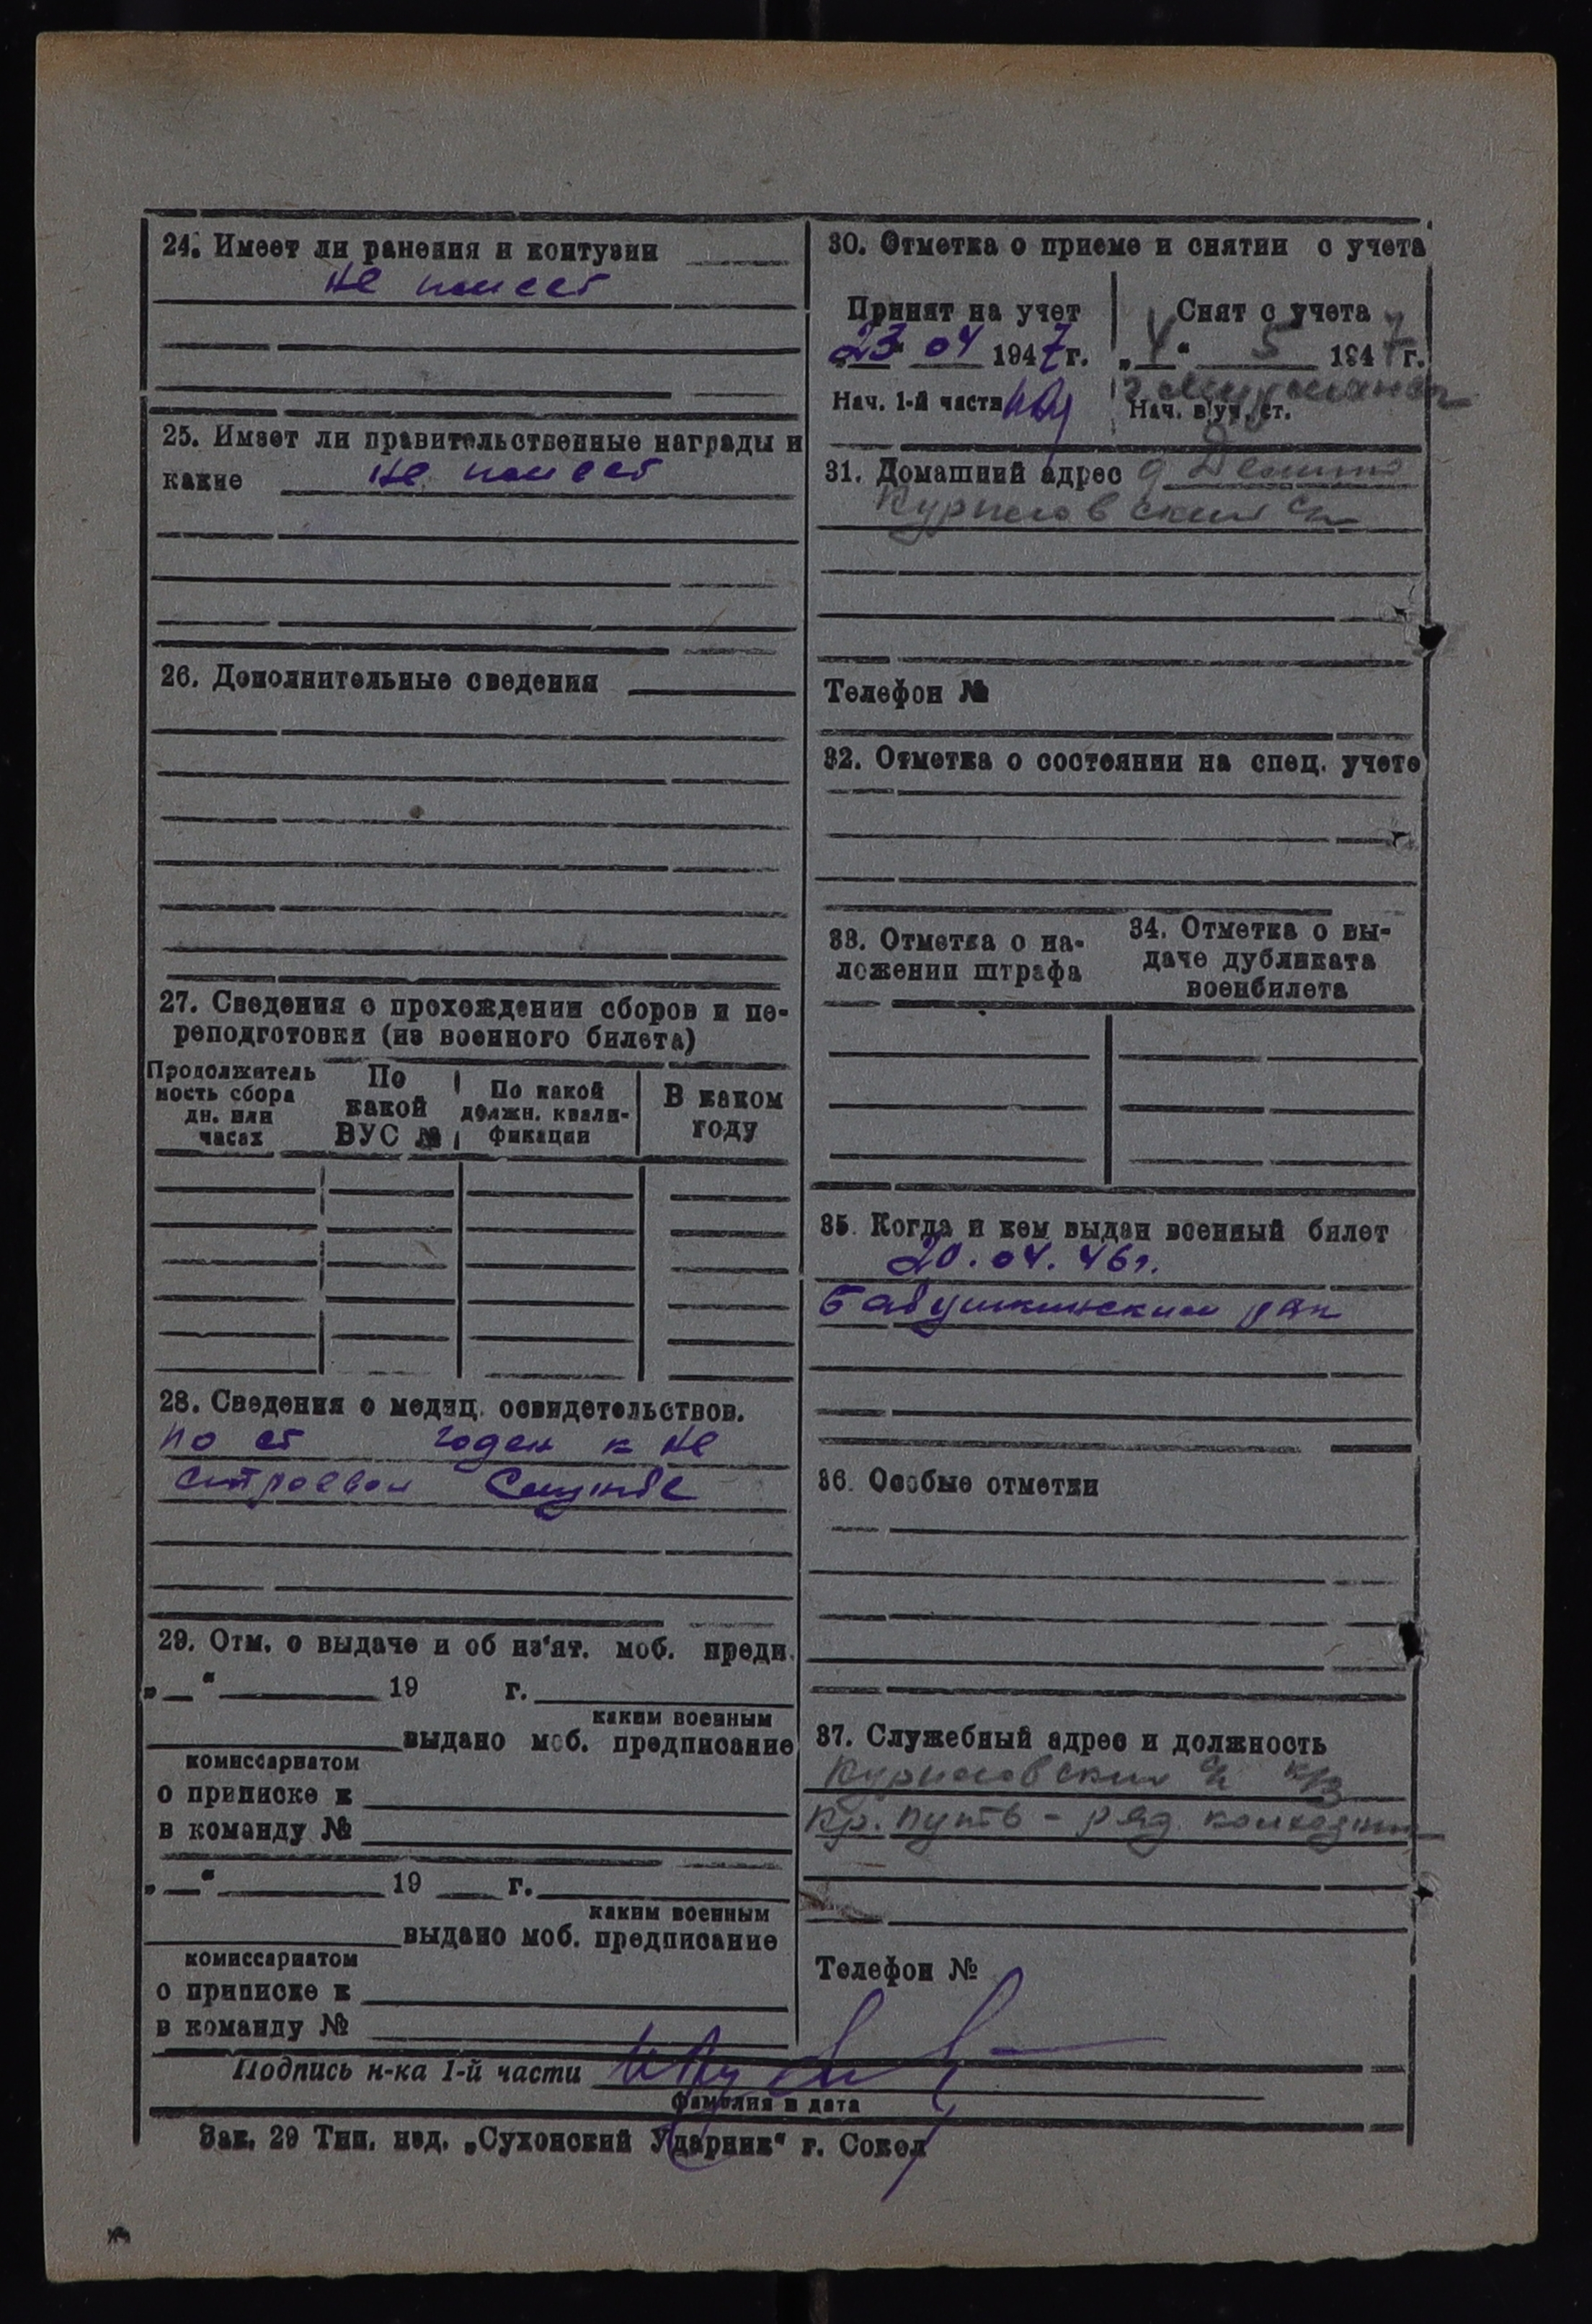 24. Имеет ли ранения и контузии
не имеет
25. Имеет ли правительственные награды и
какие не имеет
26. Дополнительные сведения
27. Сведения о прохождении сборов и пе-
реподготовки (из военного билета)
Продолжитель
ность сбора
дн. или
часах
По
какой
ВУС №
По какой
должн. квали-
фикации
В каком
году
28. Сведения о медиц. освидетельствов.
по ст годен к не
строевой службе
29. Отм. о выдаче и об из'ят. моб. предп.
„ “ 19 г.
каким военным
выдано моб. предписание
комиссариатом
о приписке к
в команду №
„ “ 19 г.
каким военным
выдано моб. предписание
комиссариатом
о приписке к
в команду №
30. Отметка о приеме и снятии с учета
Принят на учет
23 04 1947 г.
Нач. 1-й части
Снят с учета
„4“ 5 1947 г.
г. Мурманск
Нач. в/уч. ст.
31. Домашний адрес д.
Куриловский с/с
Телефон №
32. Отметка о состоянии на спец. учете
33. Отметка о на-
ложении штрафа
34. Отметка о вы-
даче дубликата
военбилета
35. Когда и кем выдан военный билет
20.04.46г.
Бабушкинским рвк
36. Особые отметки
37. Служебный адрес и должность
Куриловский с/с к/з
Кр. путь - ряд. колхозник
Телефон №
Подпись н-ка 1-й части
фамилия и дата
Зак. 29 Тип. изд. „Сухонский Ударник“ г. Сокол